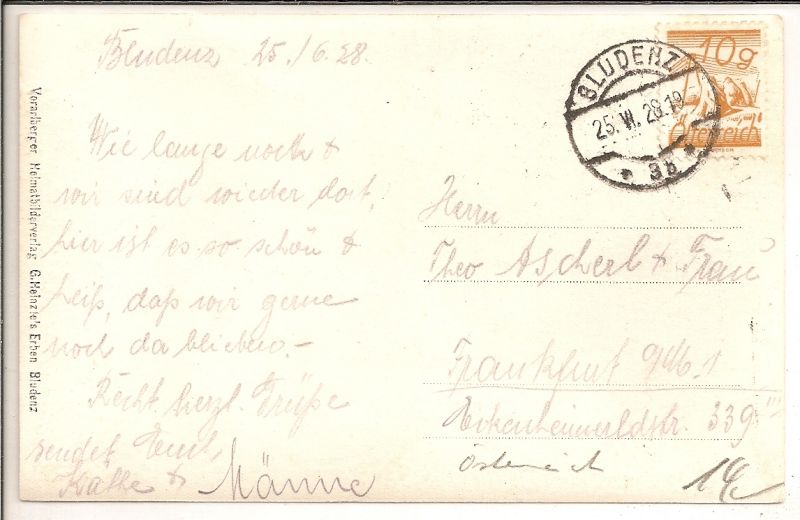 Bludenz 25./6.28.
Wie lange noch &
wir sind wieder dort,
hier ist es so schön &
heiß, daß wir gerne
noch da blieben.-
Recht herzl. Grüße
sendet Euch,
Käthe & Männe
Vorarlberger Heimatbilderverlag G. Heinzle's Erben Bludenz
10g
Österreich
BLUDENZ
25.VI.28.19
* 3b *
Herrn
Theo Ascherl & Frau
Frankfurt a/M. 1
Eckenheimerldstr. 339 III
Österreich